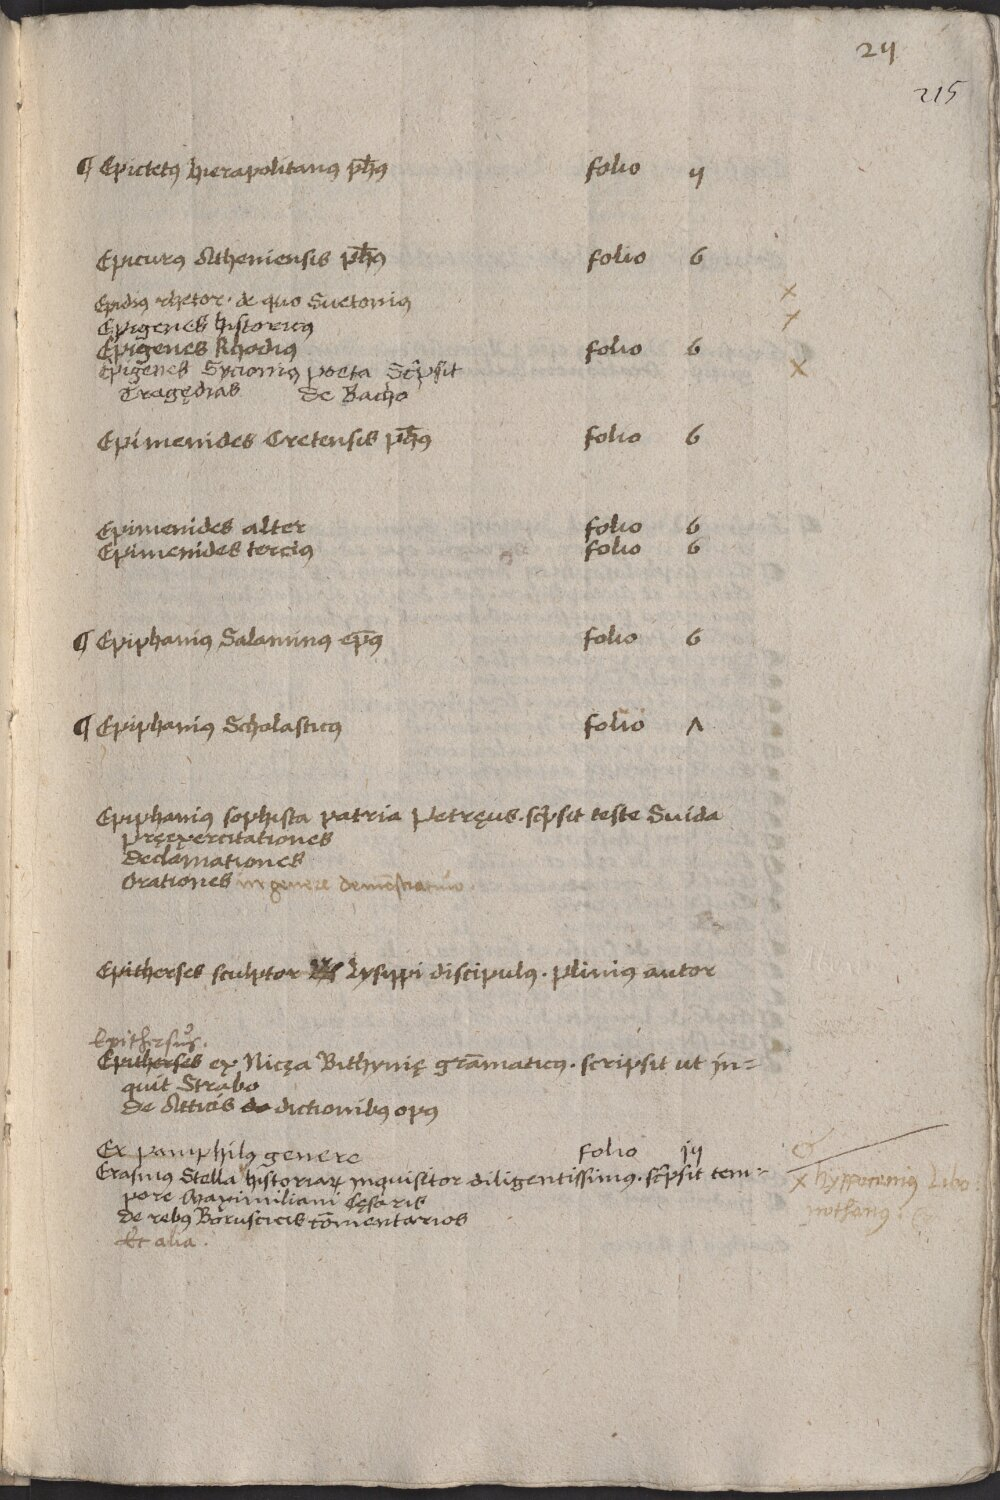 24
215
¶ Epictetꝰ hierapolitanꝰ ph̄ꝰ folio 4
Epicurꝰ Atheniensis ph̄ꝰ folio 6
Epidiꝰ rhetor. de quo Suetoniꝰ x
Epigenes historicꝰ x
Epigenes Rhodiꝰ folio 6
Epigenes Sycioniꝰ poeta Sc̄psit x
Tragędias de Bacho
Epimenides Cretensis ph̄ꝰ folio 6
Epimenides alter folio 6
Epimenides terciꝰ folio 6
¶ Epiphaniꝰ Salaminꝰ ep̄ꝰ folio 6
¶ Epiphaniꝰ Scholasticꝰ folio Λ
Epiphaniꝰ sophista patria Petręus. sc̄psit teste Suida
pręexercitationes
declamationes
Orationes in genere demōstratiuo.
Epitherses sculptor Lysippi discipulꝰ. Pliniꝰ autor
Epithersꝰ.
Epitherses ex Nicęa Bithynię grāmaticꝰ. scripsit ut in=
quit Strabo
De Atticis de dictionibꝰ opꝰ
Ex pamphilꝰ genere folio
Erasmus Stella historiaꝝ inquisitor diligentissimꝰ. sc̄psit tem=
pore Maximiliani Cęsaris
de rebꝰ Boruscicis cōmentarios
Et alia.
x hyppocemꝰ Libo
nothanꝰ.